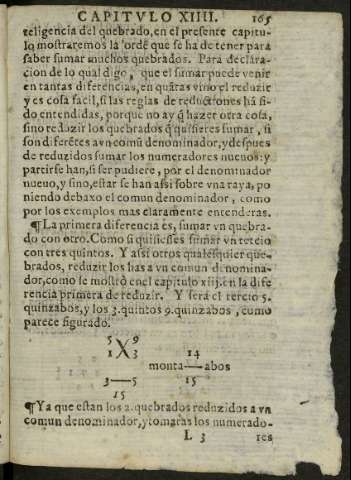 CAPITVLO XIIII. 165
teligencia del quebrado, en el presente capitu-
lo mostraremos la ordē que se ha de tener para
saber sumar muchos quebrados. Para declara-
cion de lo qual digo, que el sumar puede venir
en tantas diferencias, en quātas vino el reduzir
y es cosa facil, si las reglas de reductiones hā si-
do entendidas, porque no ay q̄ hazer otra cosa,
sino reduzir los quebrados q̄ quisieres sumar, si
son diferētes a vn comū denominador, y despues
de reduzidos sumar los numeradores nueuos: y
partirse han, si ser pudiere, por el denominador
nueuo, y sino, estar se han assi sobre vna raya, po
niendo debaxo el comun denominador, como
por los exemplos mas claramente entenderas.
¶La primera diferencia es, sumar vn quebra-
do con otro. Como si quisiesses sumar vn tercio
con tres quintos. Y assi otros qualesquier que-
brados, reduzir los has a vn comun denomina-
dor, como se mostrò en el capitulo xiij. en la dife
rencia primera de reduzir. Y será el tercio 5.
quinzabos, y los 3. quintos 9. quinzabos, como
parece figurado.
5 9
1X3 14
monta—abos
3—5 15
15
¶Ya que estan los 2. quebrados reduzidos a vn
comun denominador, y tomaras los numerado-
L 3 res